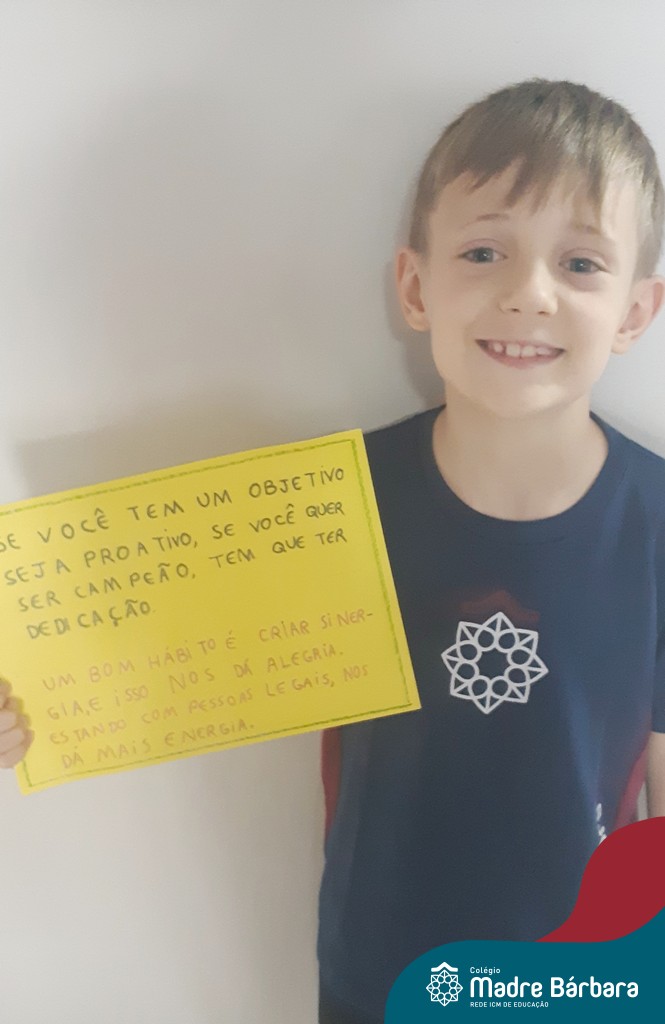 SE VOCÊ TEM UM OBJETIVO
SEJA PROATIVO, SE VOCÊ QUER
SER CAMPEÃO, TEM QUE TER
DEDICAÇÃO.
UM BOM HÁBITO É CRIAR SINER-
GIA, E ISSO NOS DÁ ALEGRIA.
ESTANDO COM PESSOAS LEGAIS, NOS
DÁ MAIS ENERGIA.
Colégio
Madre Bárbara
REDE ICM DE EDUCAÇÃO